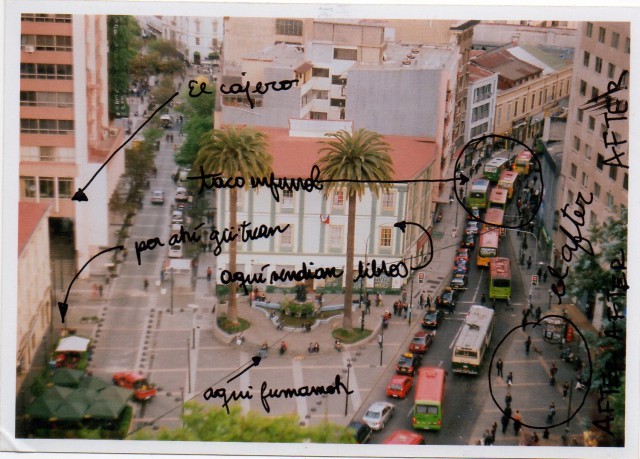 el cajero
taco infernal
por ahí gritan
aquí vendían libros
aquí fumamos
el after
AFTER
AFTER
AFTER
AFTER